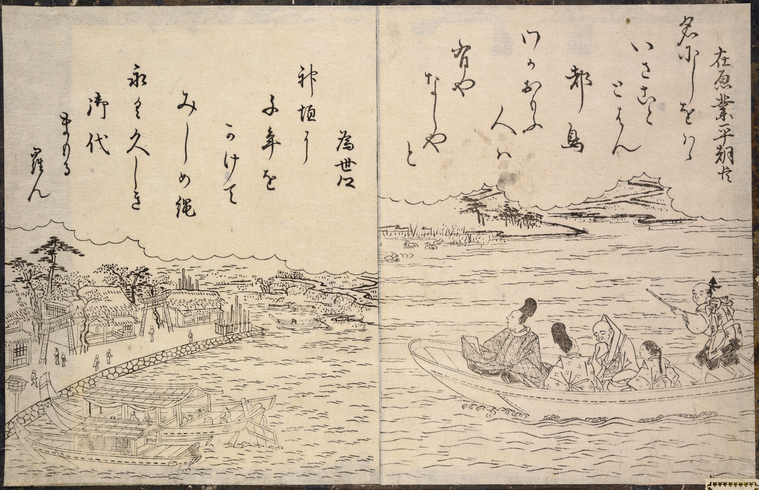 在原業平朝臣
名にしをはゝ
いさこと
とはん
都鳥
わかおもふ
人は
有や
なしや
と
為世
神垣に
千年を
かけて
みしめ縄
永く久しき
御代
まもる
羅ん